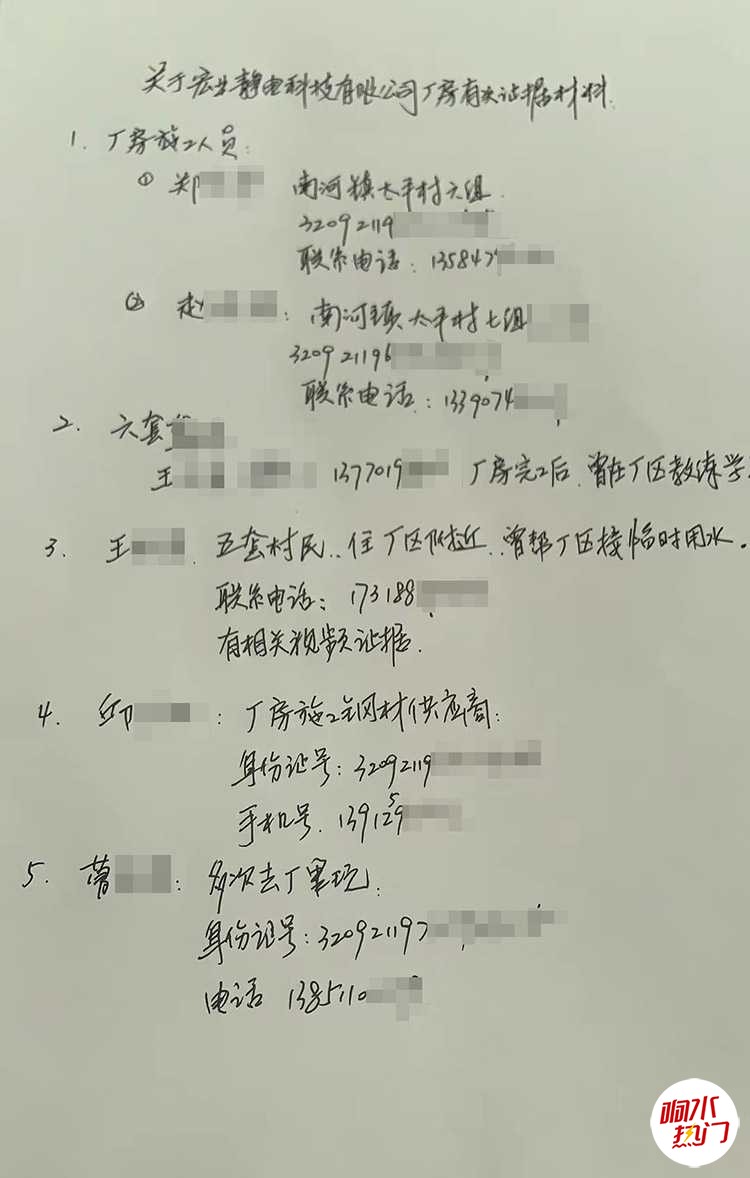 关于宏生静电科技有限公司厂房有关证据材料
1. 厂房施工人员:
① 郑 南河镇太平村六组
32092119
联系电话: 135847
② 赵 : 南河镇太平村七组
320921196
联系电话: 1339074
2. 六套
王 1377019 厂房完工后, 曾在厂区教练学
3. 王 五套村民, 住厂区附近, 曾帮厂区接临时用水.
联系电话: 173188
有相关视频证据.
4. 邱 : 厂房施工钢材供应商:
身份证号: 32092119
手机号. 139129
5
5. 曹 : 多次去厂里玩.
身份证号: 320921197
电话 1385110
响水
热门